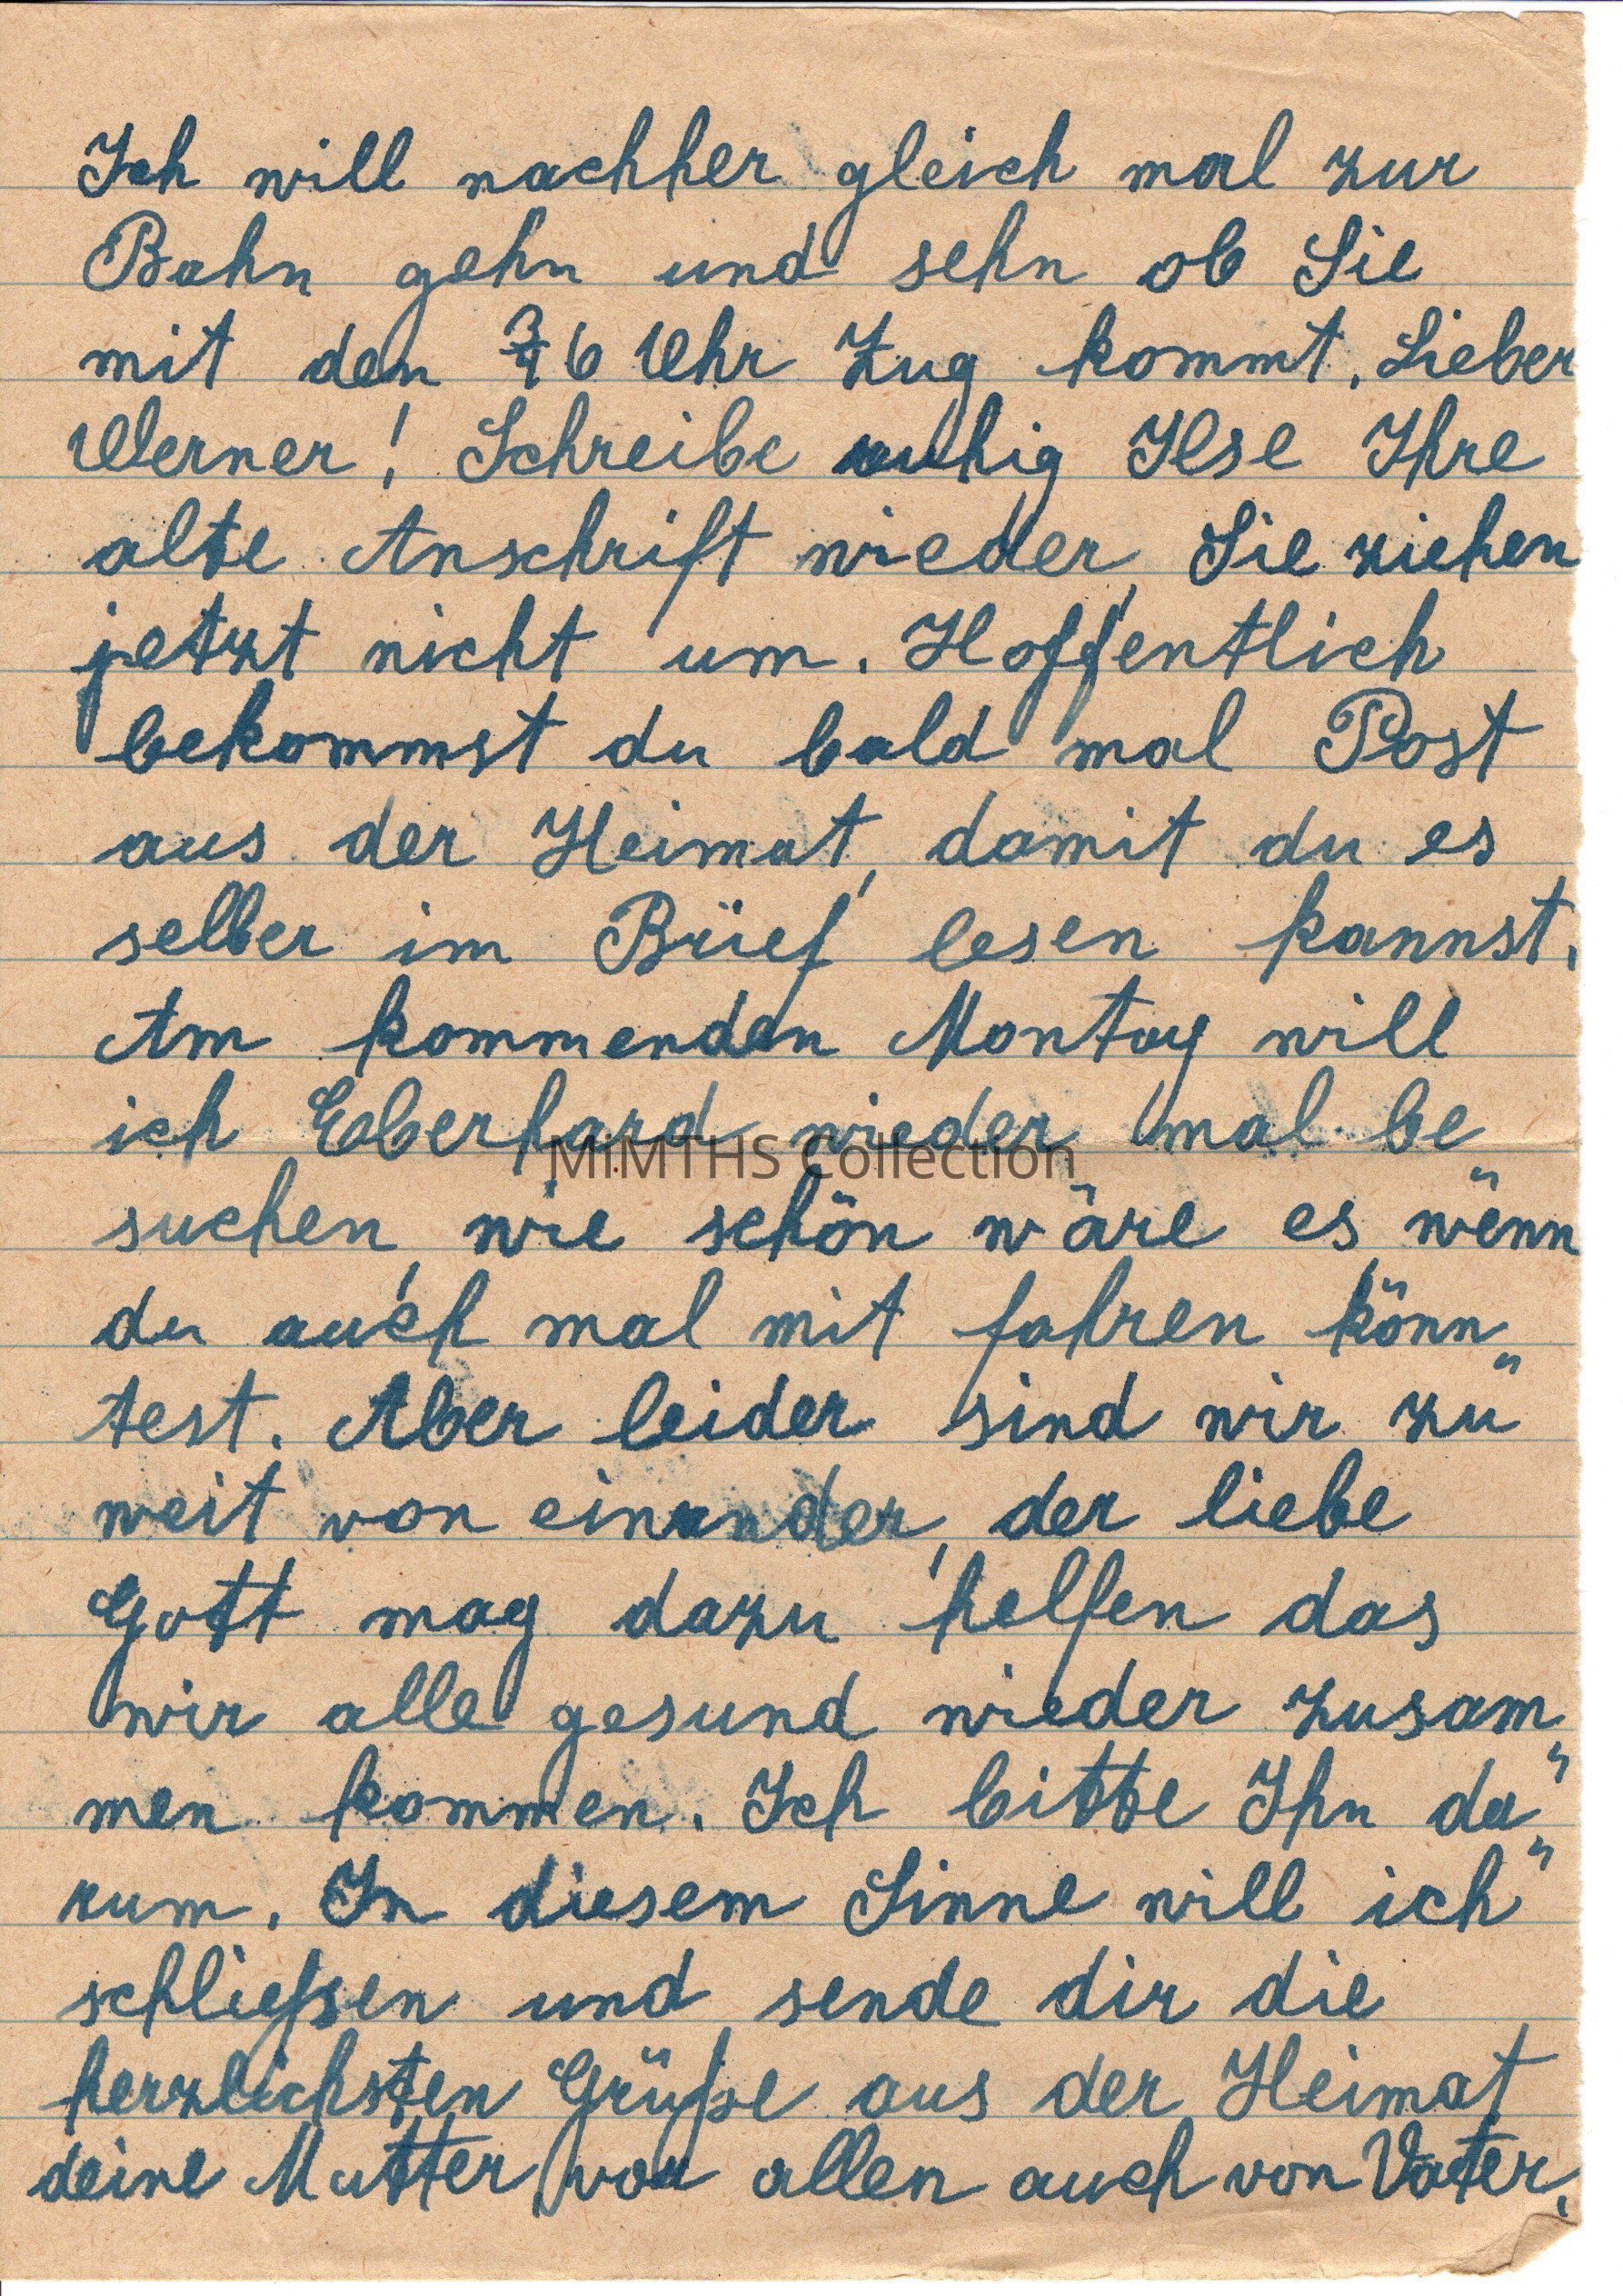 Ich will nachher gleich mal zur
Bahn gehn und sehn ob Sie
mit den ¾ 6 Uhr Zug kommt. Lieber
Werner! Schreibe ruhig Ilse Ihre
alte Anschrift wieder, Sie ziehen
jetzt nicht um. Hoffentlich
bekommst du bald mal Post
aus der Heimat, damit du es
selber im Brief lesen kannst.
Am kommenden Montag will
ich Eberhard wieder mal be„
MiMTHS Collection
"suchen, wie schön wäre es wenn
du auch mal mit fahren könn„
"test. Aber leider sind wir zu
weit von einander, der liebe
Gott mag dazu helfen das
wir alle gesund wieder zusam„
"men kommen. Ich bitte Ihn da„
"rum. In diesem Sinne will ich
schließen und sende dir die
herzlichsten Grüße aus der Heimat
deine Mutter, vor allen auch von Vater.